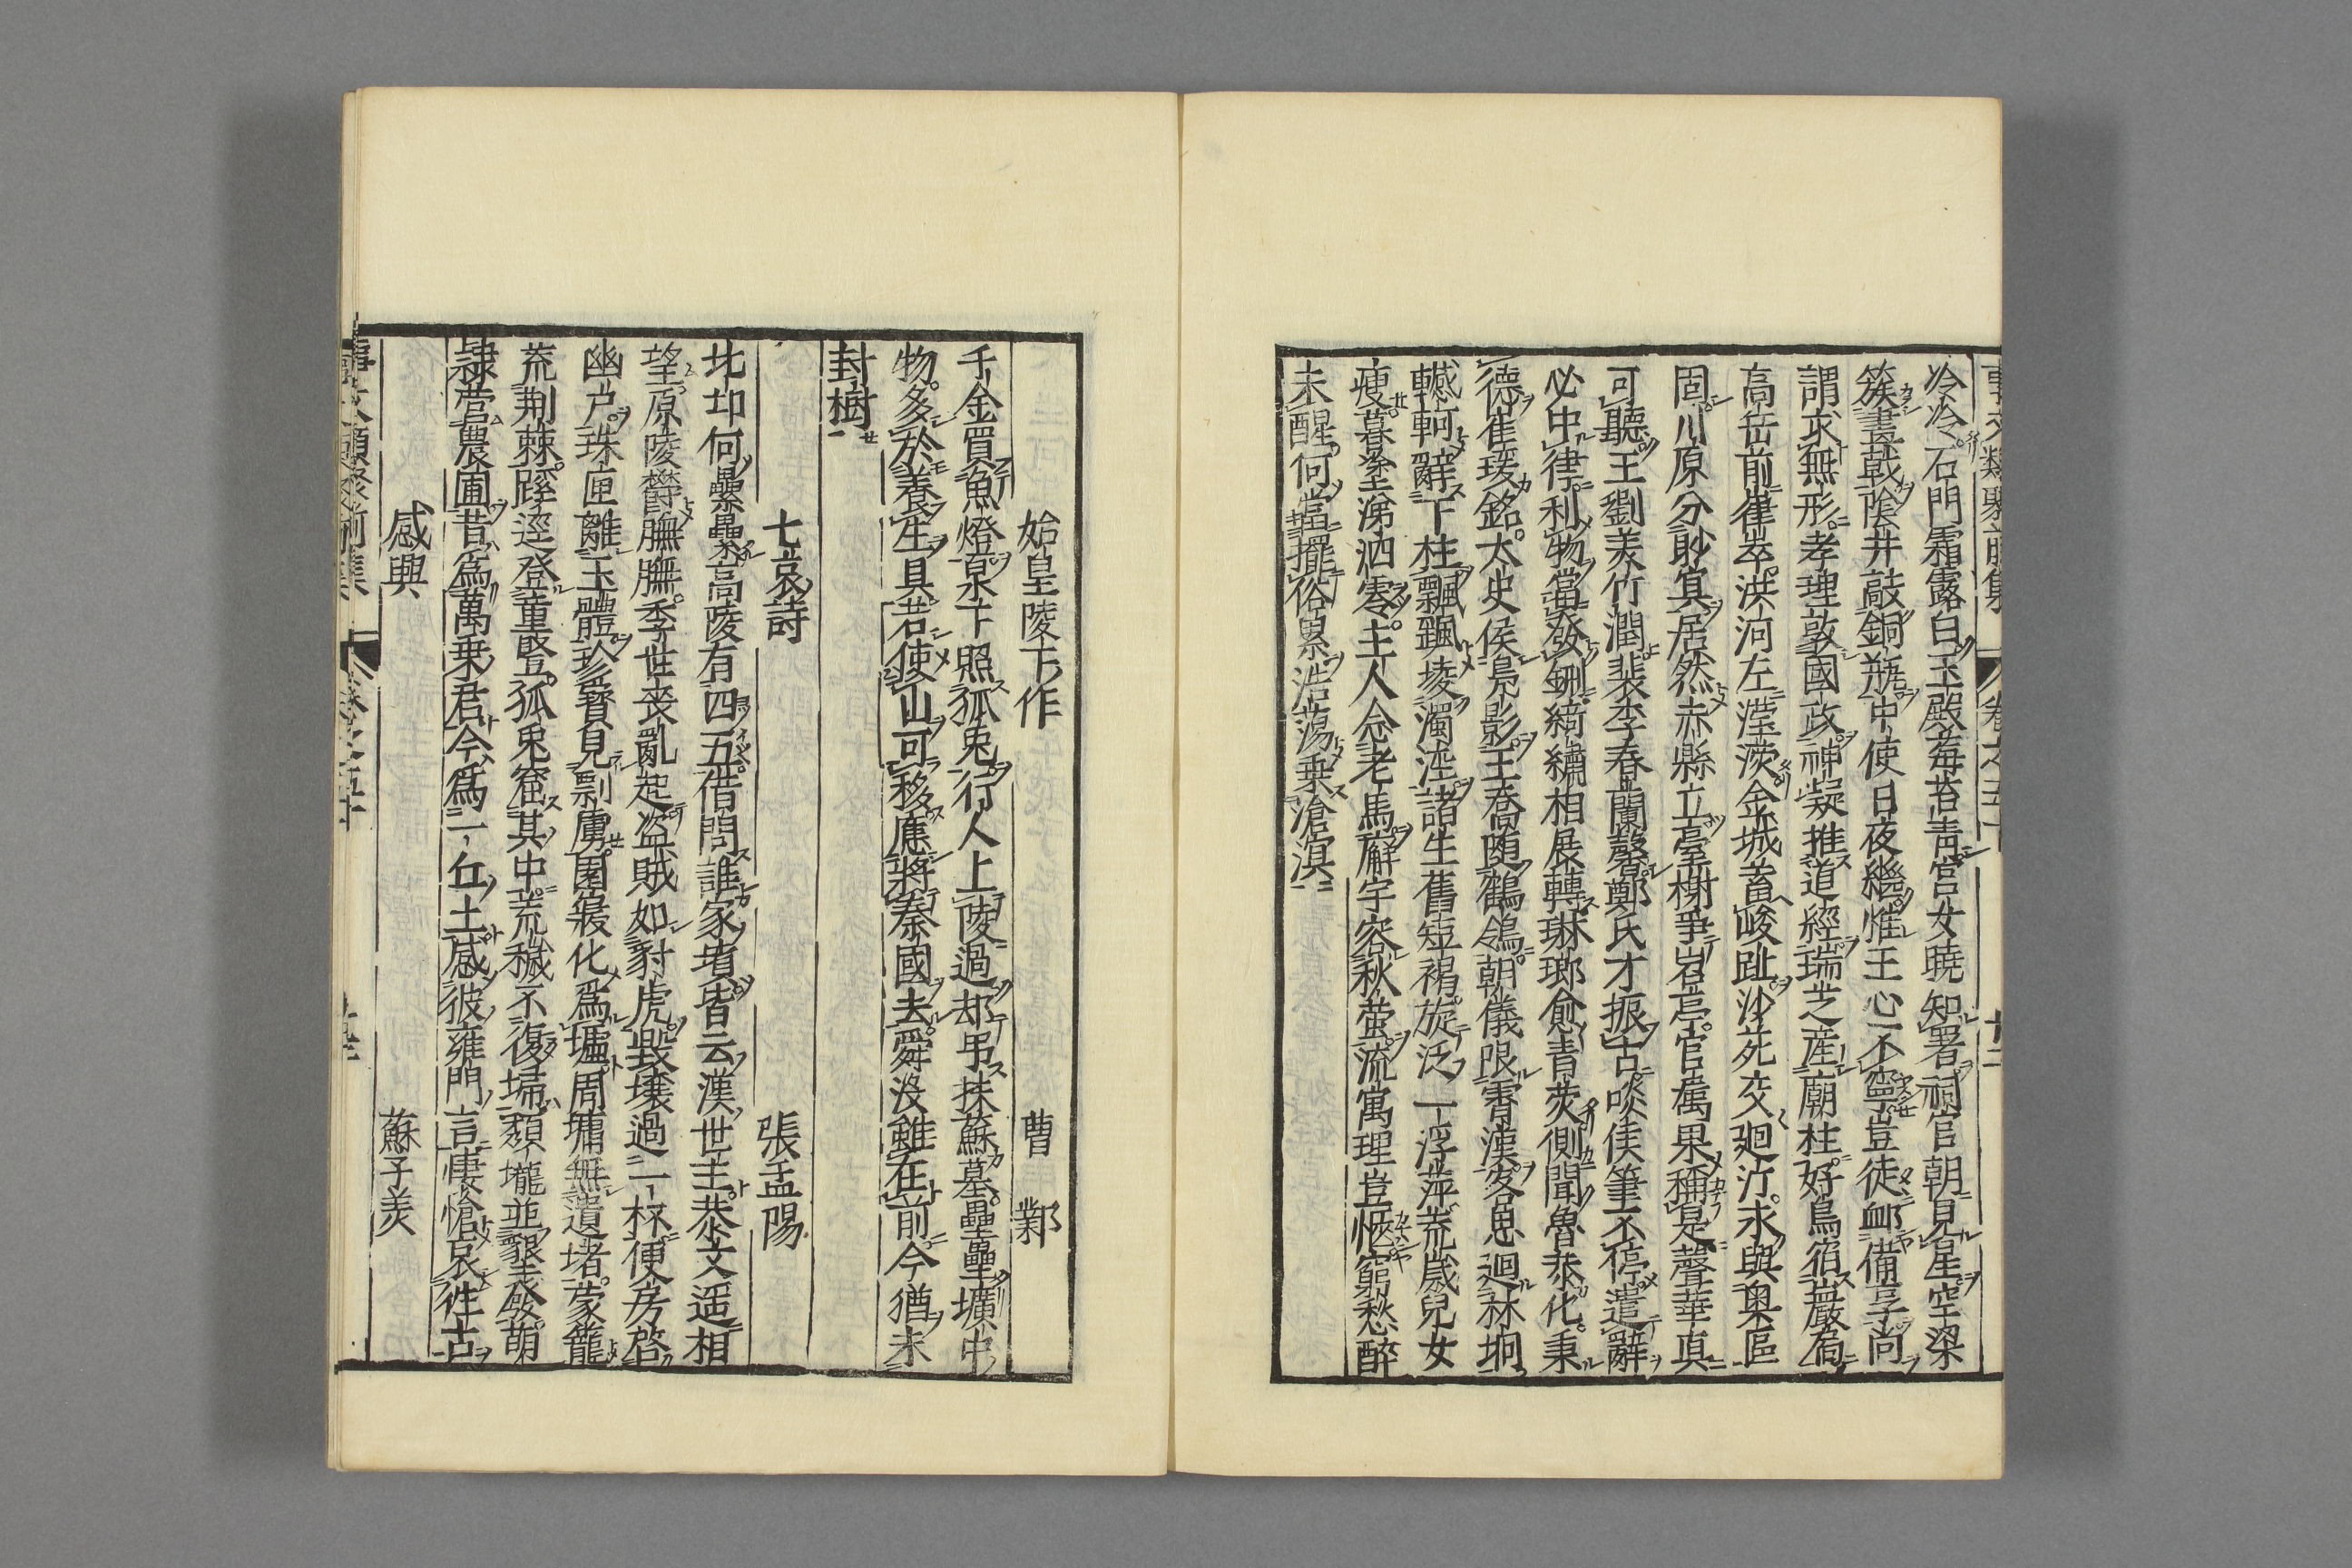 事文類聚前集 卷之五十 廿二
冷冷石門霜露白玉殿莓苔青宮女曉知署祠官朝見星空梁
簇畫戟陰井敲銅瓶中使日夜繼惟王心不寧豈徒䘏備享尚
謂求無形孝理敦國政神凝推道經瑞芝産廟柱好鳥宿巖扃
高岳前嵂崒洪河左瀅濙金城蓄峻趾沙苑交廻汀永與奥區
固川原分眇冥居然赤縣立臺榭爭岧亭官属果稱是聲華真
可聽王劉美竹潤裴李春蘭馨鄭氏才振古啖侯筆不停遣辭
必中律利物常發硎綺繡相展轉琳瑯愈青熒側聞魯恭化秉
德崔瑗銘太史侯鳧影王喬随鶴翎朝儀限霄漢客思廻林坰
轗軻辭下杜飄颻堎濁涇諸生舊短褐旋泛一浮萍荒歲兒女
瘦暮塗涕泗零主人念老馬廨宇容秋螢流寓理豈愜窮愁醉
未醒何當擺俗累浩蕩乗滄溟
始皇陵下作 曹鄴
千金買魚燈泉下照狐兎行人上陵過却弔扶蘇墓壘壘壙中
物多於養生具若使山可移應將秦國去舜没雖在前今猶未
封樹
七哀詩 張孟陽
北邙何纍纍高陵有四五借問誰家墳皆云漢世主恭文遥相
望原陵鬱膴膴季世喪亂起盗賊如豺虎毀壤過一杯便房啓
幽户珠匣離玉體珍寶見剽虜園寢化為墟周墉無遺堵蒙籠
荒荆棘蹊逕登童豎狐兎窟其中荒穢不復埽頽壠並墾發萌
隷營農圃昔為萬乗君今為一丘土感彼雍門言悽愴哀徃古
感興 蘇子美
事文類聚前集 卷之五十 廿三